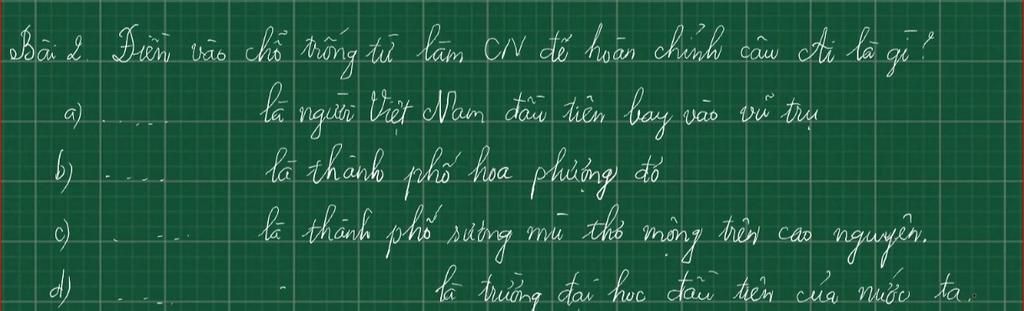 Bài 2. Điền vào chỗ trống từ làm CN để hoàn chỉnh câu Ai là gì?
a) ..... là người Việt Nam đầu tiên bay vào vũ trụ
b) ..... là thành phố hoa phượng đỏ
c) ..... là thành phố sương mù thơ mộng trên cao nguyên.
d) ..... là trường đại học đầu tiên của nước ta.